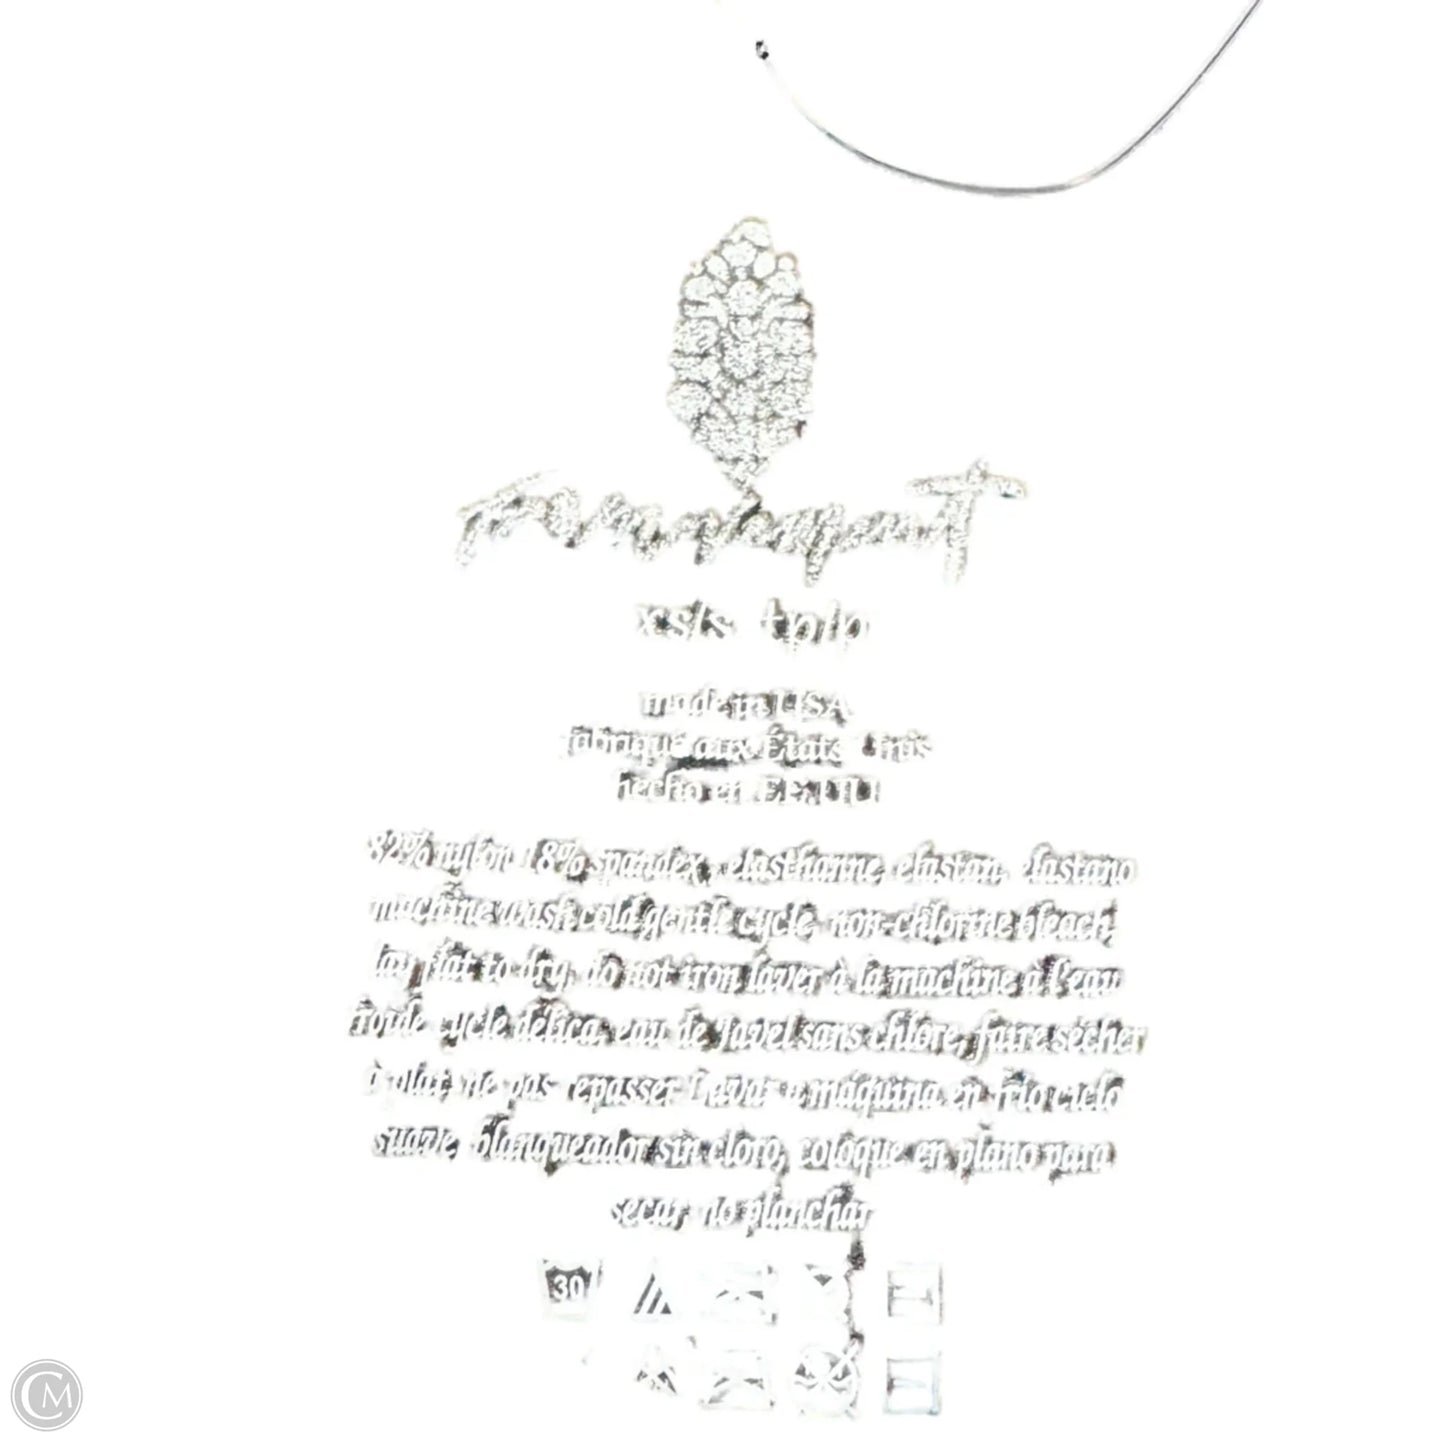 xs/s tp/p
made in USA
fabriqué aux États Unis
hecho en EE.UU
82% nylon 18% spandex, elasthanne, elastan, elastano
machine wash cold gentle cycle, non-chlorine bleach,
lay flat to dry, do not iron laver à la machine à l'eau
froide cycle délica, eau de Javel sans chlore, faire sécher
à plat, ne pas repasser Lavar a máquina en frio ciclo
suave, blanqueador sin cloro, coloque en plano para
secar, no planchar
30
CM